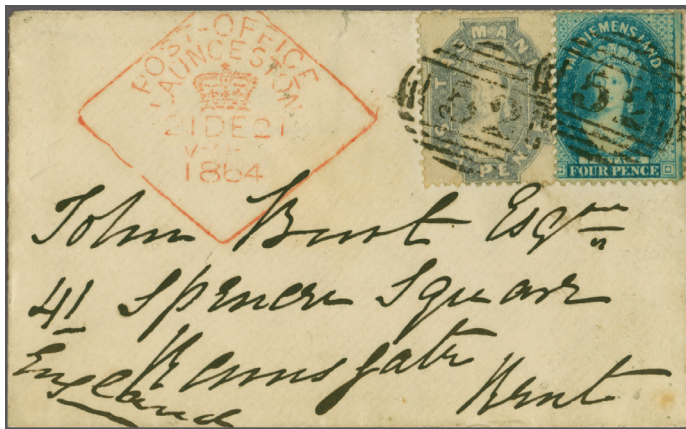 POST-OFFICE
LAUNCESTON
21 DE 21
1864
MAN
PENCE
52
VAN DIEMENS LAND
52
FOUR PENCE
John Esqre
41 Spencer Square
Ramsgate
Kent
England